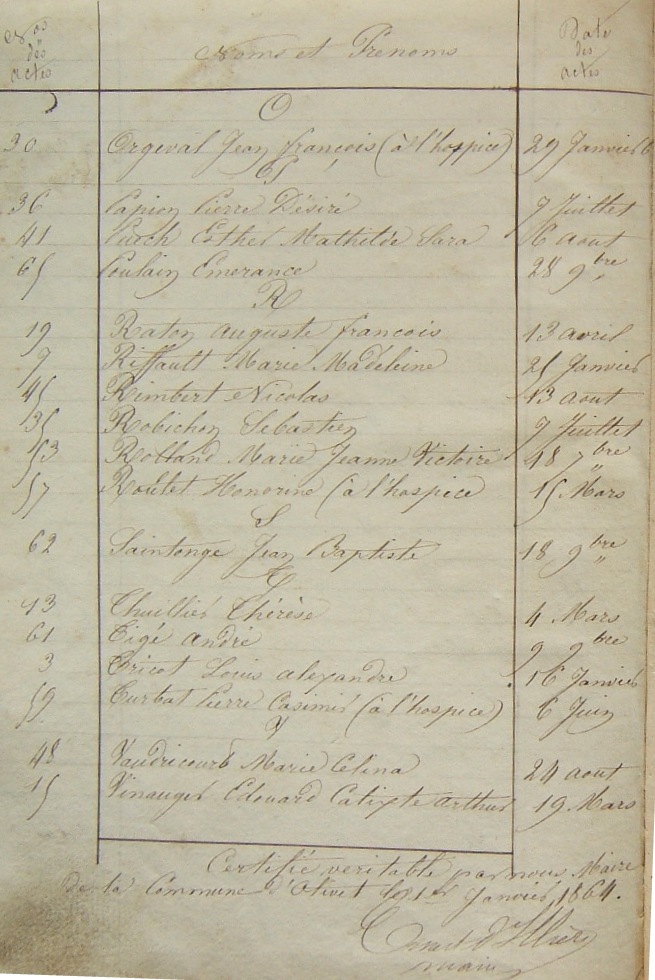 Nos des actes Noms et Prénoms Date des actes
O
30 Orgeval Jean françois (à l'hospice) 29 Janvier
P
36 Papion Pierre Désiré 7 Juillet
41 Puech Esther Mathilde Sara 6 aout
65 Poulain Emerance 28 9bre
R
19 Raton auguste francois 13 avril
9 Riffault Marie Madeleine 25 Janvier
45 Rimbert Nicolas 13 aout
35 Robichon Sebastien 7 Juillet
53 Rolland Marie Jeanne Victoire 18 7bre
57 Roulet Honorine (à l'hospice 15 Mars
S
62 Saintonge Jean Baptiste 18 9bre
T
13 Thuillier Thérèse 4 Mars
61 Tigé andré 9 9bre
3 Tricot Louis alexandre 16 Janvier
59 Turbat Pierre Casimir (à l'hospice) 6 Juin
V
48 Vaudricourt Marie Celina 24 aout
15 Vinauger Edouard Calixte arthur 19 Mars
Certifié veritable par nous Maire
de la Commune d'Olivet le 1er Janvier 1864.
maire